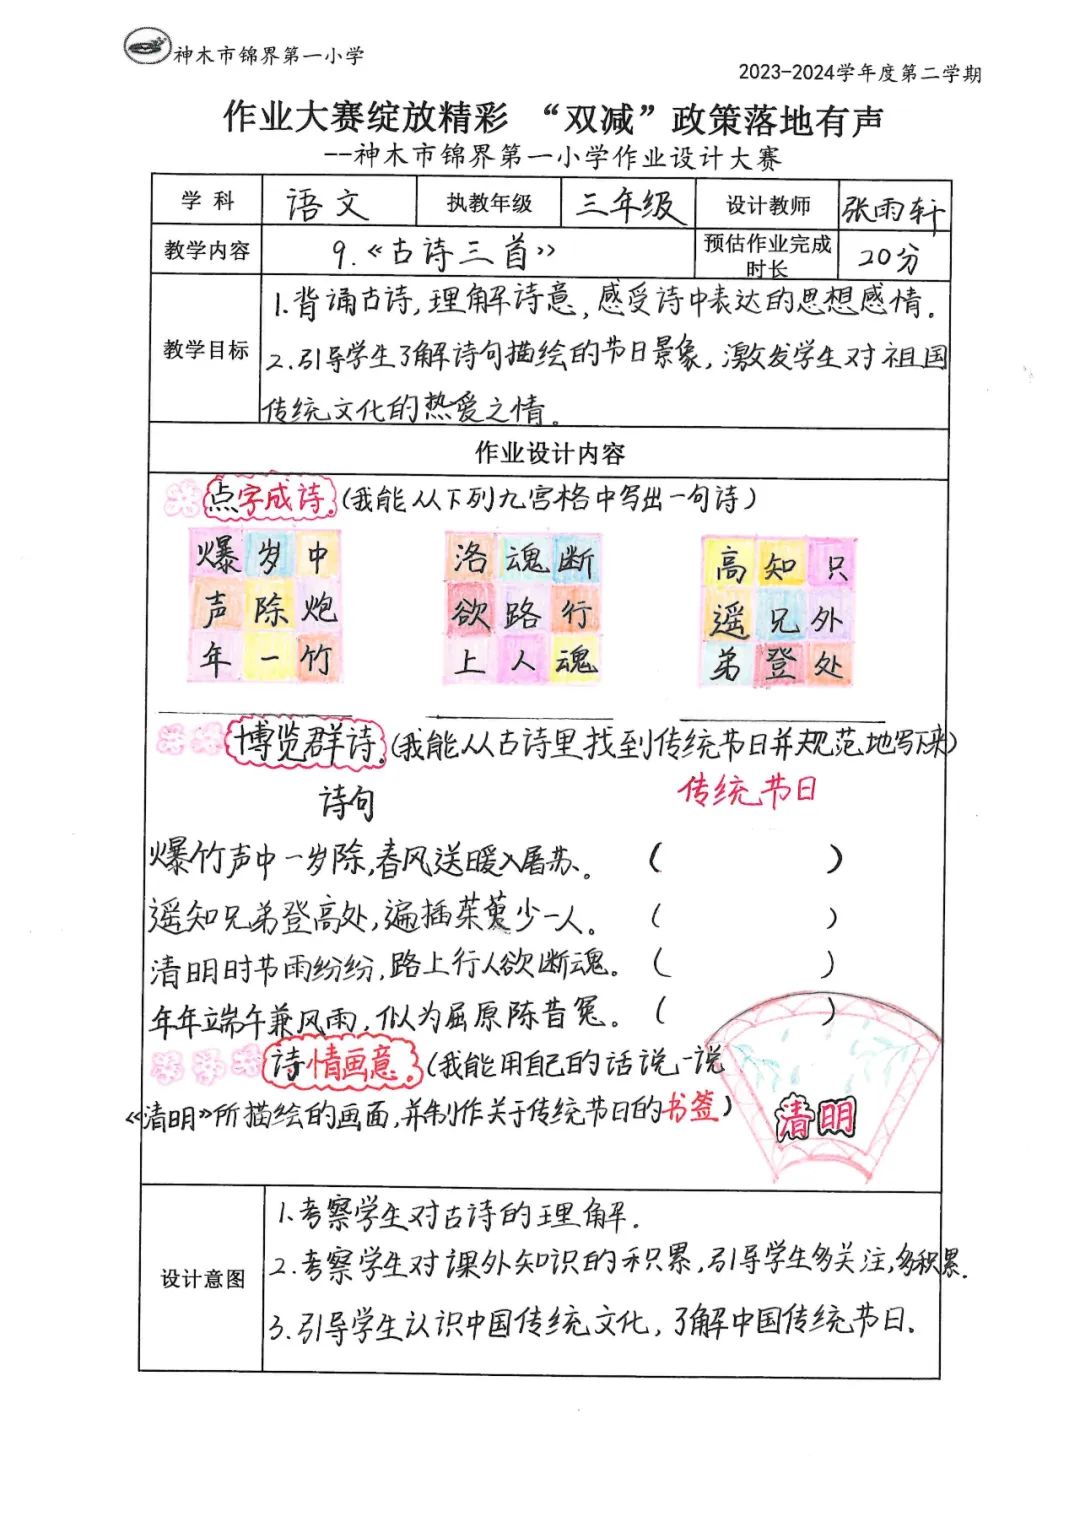 神木市锦界第一小学
2023-2024学年度第二学期
作业大赛绽放精彩 “双减”政策落地有声
--神木市锦界第一小学作业设计大赛
学 科 语文 执教年级 三年级 设计教师 张雨轩
教学内容 9.《古诗三首》 预估作业完成时长 20分
教学目标
1.背诵古诗,理解诗意,感受诗中表达的思想感情.
2.引导学生了解诗句描绘的节日景象,激发学生对祖国
传统文化的热爱之情。
作业设计内容
点字成诗.(我能从下列九宫格中写出一句诗)
爆 岁 中 洛 魂 断 高 知 只
声 除 炮 欲 路 行 遥 兄 外
年 一 竹 上 人 魂 弟 登 处
博览群诗.(我能从古诗里找到传统节日并规范地写下来)
诗句 传统节日
爆竹声中一岁除,春风送暖入屠苏。 ( )
遥知兄弟登高处,遍插茱萸少一人。 ( )
清明时节雨纷纷,路上行人欲断魂。 ( )
年年端午兼风雨,似为屈原陈昔冤。 ( )
诗情画意.(我能用自己的话说一说
《清明》所描绘的画面,并制作关于传统节日的书签)
清明
设计意图
1.考察学生对古诗的理解.
2.考察学生对课外知识的积累,引导学生多关注,多积累.
3.引导学生认识中国传统文化,了解中国传统节日.